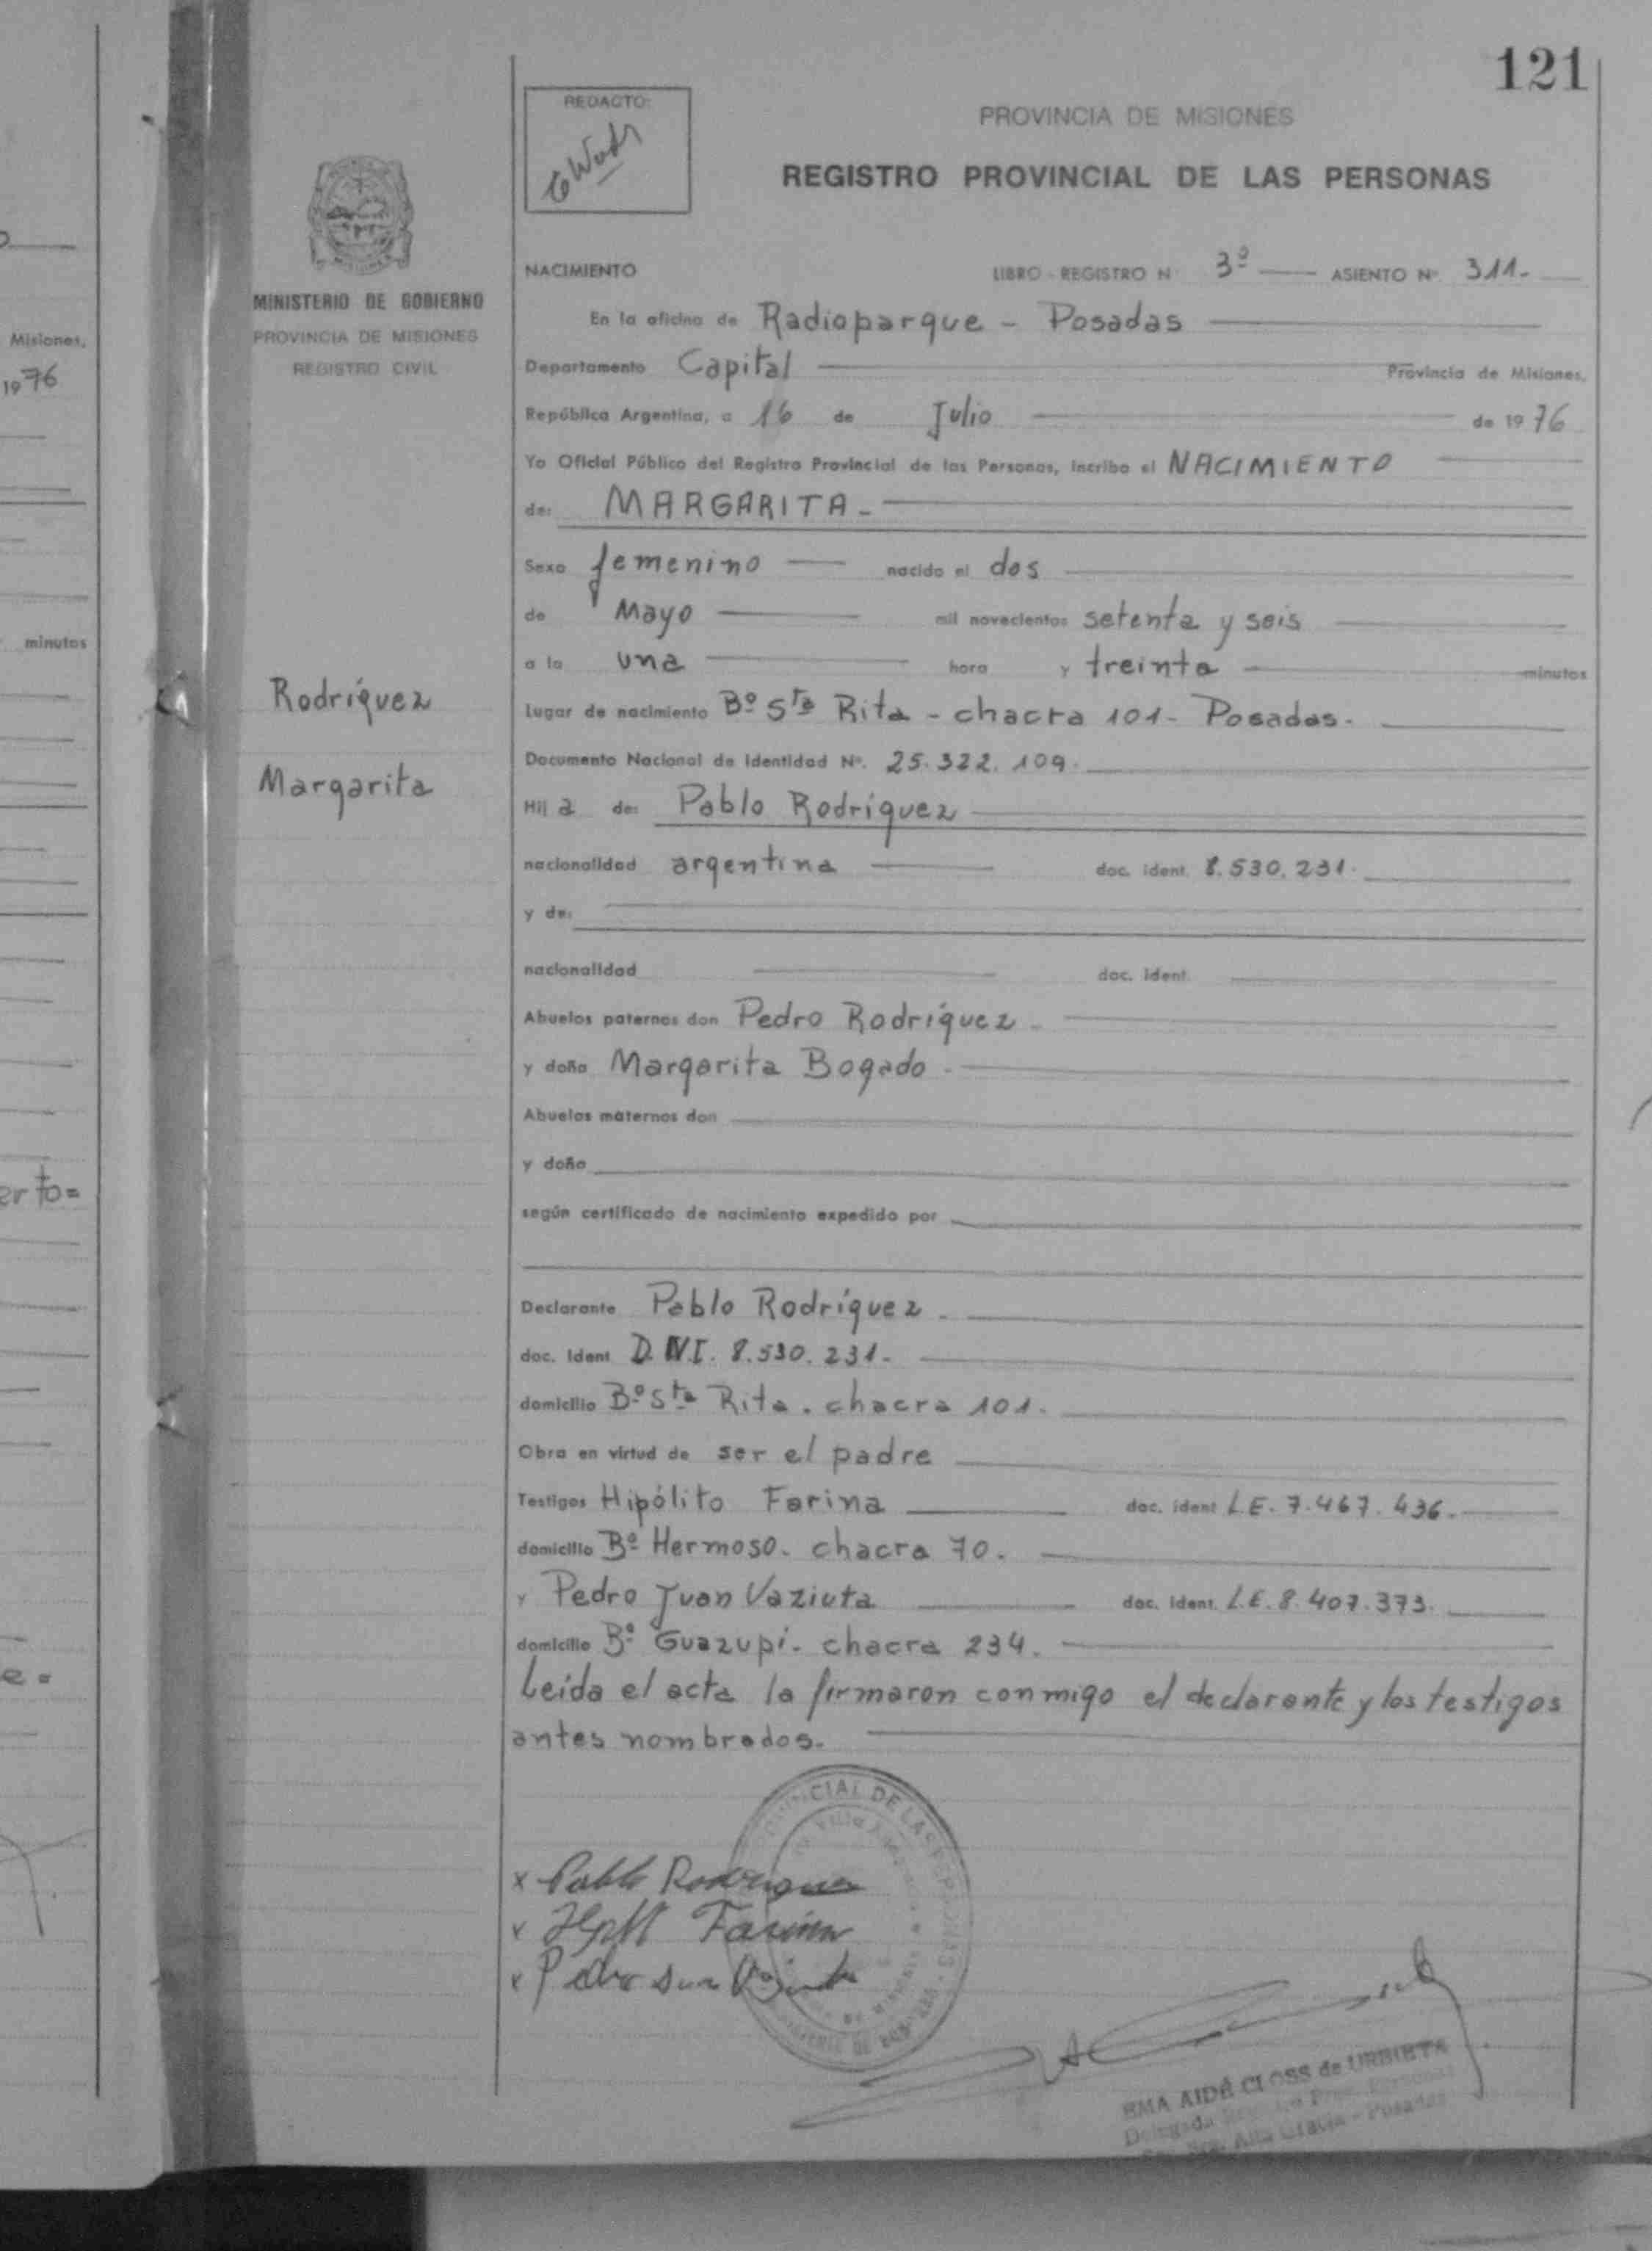 121
REDACTO:
PROVINCIA DE MISIONES
REGISTRO PROVINCIAL DE LAS PERSONAS
MINISTERIO DE GOBIERNO
PROVINCIA DE MISIONES
REGISTRO CIVIL
Misiones,
1976
minutos
erto=
e =
Rodríguez
Margarita
NACIMIENTO LIBRO - REGISTRO Nº 3º ASIENTO Nº 311.-
En la oficina de Radioparque - Posadas
Departamento Capital Provincia de Misiones,
República Argentina, a 16 de Julio de 1976
Yo Oficial Público del Registro Provincial de las Personas, incribo el NACIMIENTO
de: MARGARITA -
Sexo femenino nacido el dos
de Mayo mil novecientos setenta y seis
a la una hora y treinta minutos
Lugar de nacimiento Bº Sta Rita - chacra 101 - Posadas.
Documento Nacional de Identidad Nº. 25.322.109.
Hij a de: Pablo Rodríguez
nacionalidad argentina doc. ident. 8.530.231.
y de:
nacionalidad doc. ident.
Abuelos paternos don Pedro Rodríguez -
y doña Margarita Bogado -
Abuelos maternos don
y doña
según certificado de nacimiento expedido por
Declarante Pablo Rodríguez -
doc. Ident D.N.I. 8.530.231.-
domicilio Bº Sta Rita. chacra 101.
Obra en virtud de ser el padre
Testigos Hipólito Farina doc. ident L.E. 7.467.436.
domicilio Bº Hermoso. chacra 70.
y Pedro Juan Vaziuta doc. ident. L.E. 8.407.373.
domicilio Bº Guazupi. chacra 234.
Leida el acta la firmaron conmigo el declarante y los testigos
antes nombrados.
x Pablo Rodriguez
x Farina
x Pedro
CIAL DE LAS PERSONAS
EMA AIDÉ CLOSS de URBIETA
Delegada
Alta Gracia - Posadas